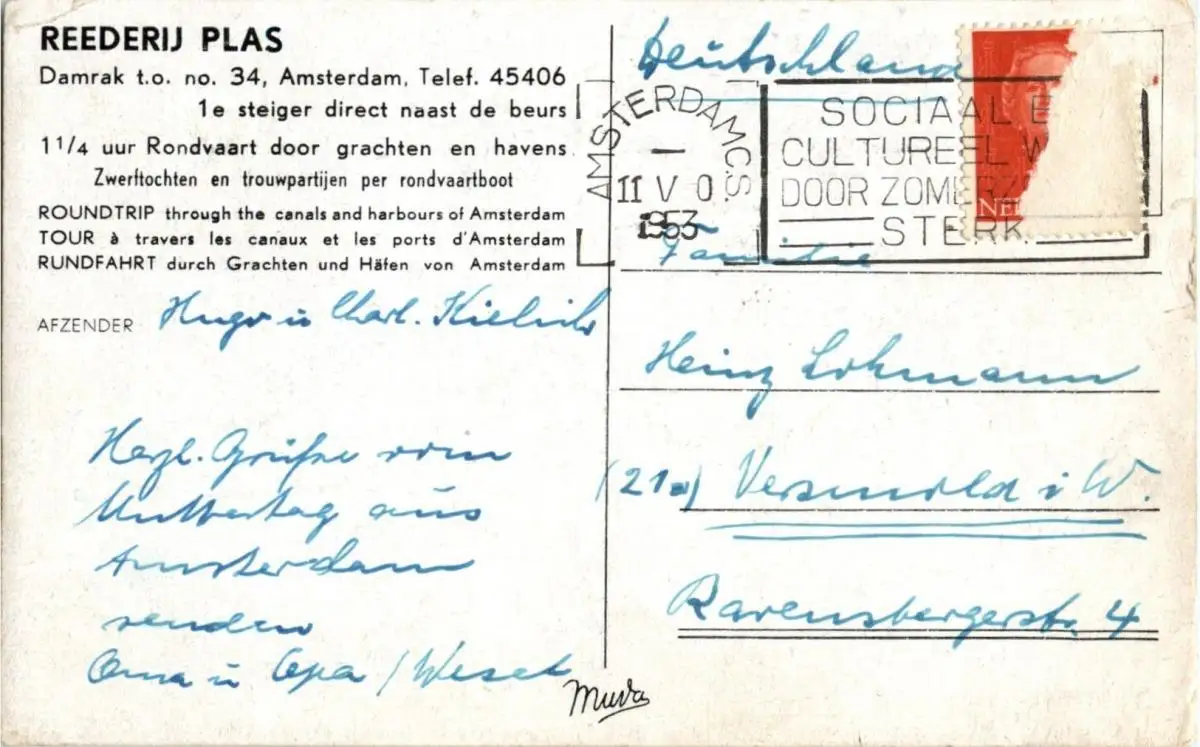 REEDERIJ PLAS
Damrak t.o. no. 34, Amsterdam, Telef. 45406
1e steiger direct naast de beurs
11/4 uur Rondvaart door grachten en havens
Zwerftochten en trouwpartijen per rondvaartboot
ROUNDTRIP through the canals and harbours of Amsterdam
TOUR à travers les canaux et les ports d'Amsterdam
RUNDFAHRT durch Grachten und Häfen von Amsterdam
AFZENDER Hugo u Charl.
Herzl. Grüße vom
Muttertag aus
Amsterdam
senden
Oma u Opa / Wesel
Muva
Deutschland
AMSTERDAM C.S.
11 V 0
1953
SOCIAAL E
CULTUREEL W
DOOR ZOMERZ
STERK
NE
Familie
Heinz Lohmann
(21a) Versmold i W.
Ravensbergerstr. 4